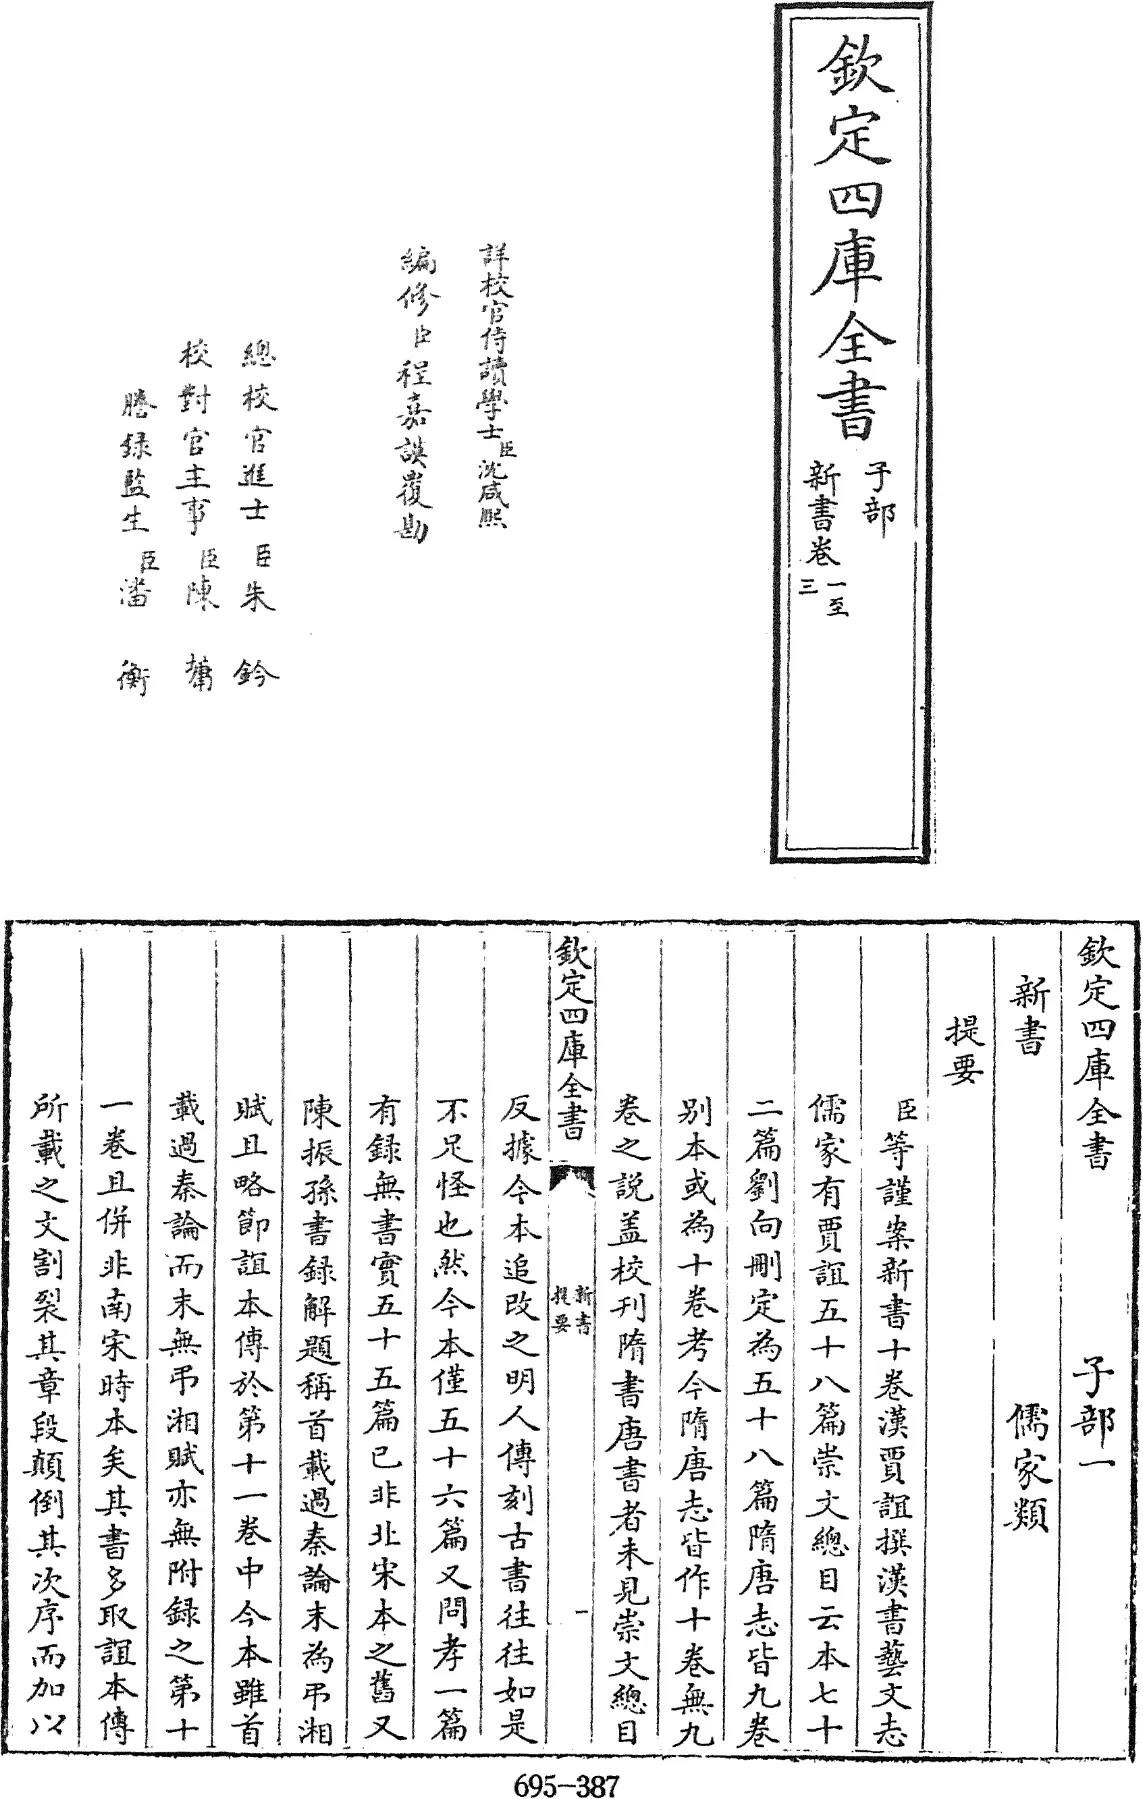 欽定四庫全書
子部
新書卷一至三
詳校官侍讀學士臣沈咸熙
編修臣程嘉謨覆勘
總校官進士臣朱鈐
校對官主事臣陳墉
謄録監生臣潘衡
欽定四庫全書 子部一
新書 儒家類
提要
臣等謹案新書十卷漢賈誼撰漢書藝文志
儒家有賈誼五十八篇崇文總目云本七十
二篇劉向刪定為五十八篇隋唐志皆九卷
别本或為十卷考今隋唐志皆作十卷無九
卷之説盖校刋隋書唐書者未見崇文總目
欽定四庫全書
新書
提要
一
反據今本追改之明人傳刻古書往往如是
不足怪也然今本僅五十六篇又問孝一篇
有録無書實五十五篇已非北宋本之舊又
陳振孫書録解題稱首載過秦論末為弔湘
賦且略節誼本傳於第十一卷中今本雖首
載過秦論而末無弔湘賦亦無附録之第十
一卷且併非南宋時本矣其書多取誼本傳
所載之文割裂其章段顛倒其次序而加以
695-387